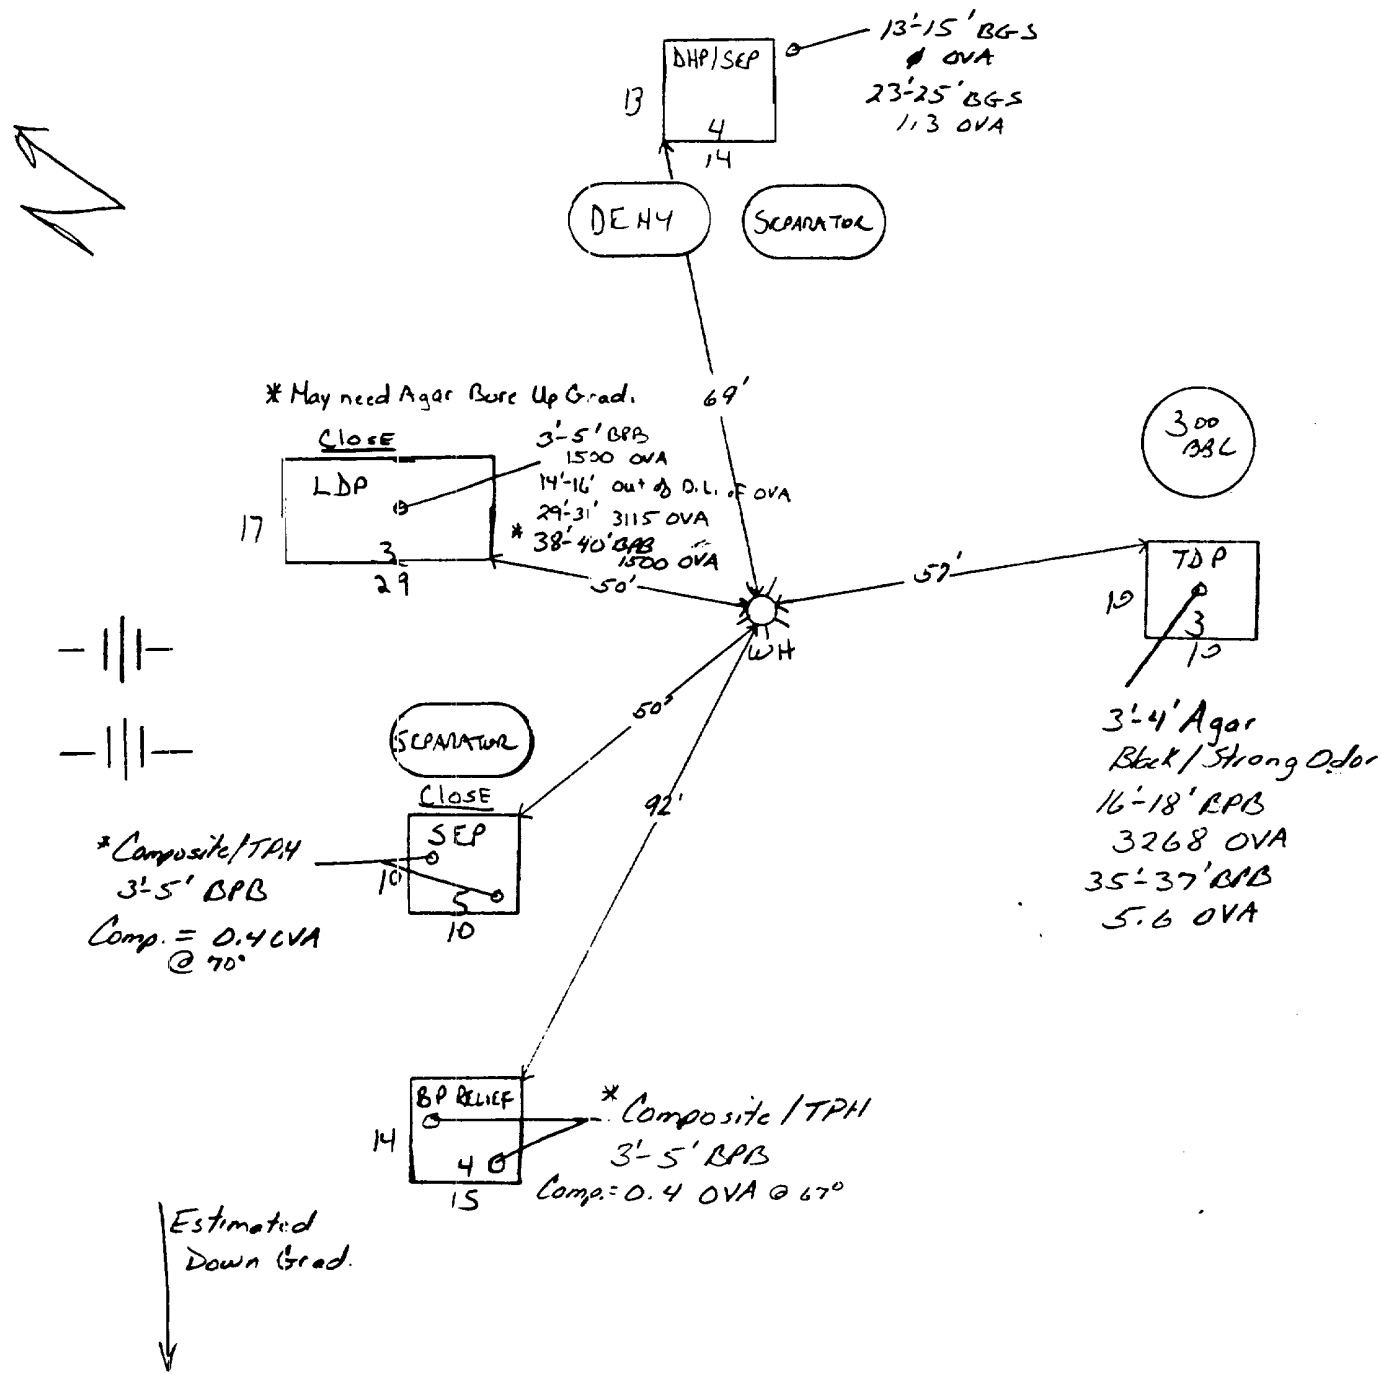 13'-15' BGS
ø OVA
23'-25' BGS
1.3 OVA
DHP/SEP
13
4
14
DEHY
SEPARATOR
69'
* May need Agar Bore Up Grad.
CLOSE
LDP
17
3
29
3'-5' BPB
1500 OVA
14'-16' Out of D.L. of OVA
29'-31' 3115 OVA
* 38'-40' BPB
1500 OVA
50'
300
BBL
57'
TDP
10
3
10
WH
3'-4' Agar
Black/Strong Odor
16'-18' BPB
3268 OVA
35'-37' BPB
5.6 OVA
50'
SEPARATOR
CLOSE
SEP
10
5
10
* Composite/TPH
3'-5' BPB
Comp. = 0.4 OVA
@ 70°
92'
BP RELIEF
14
4
15
* Composite/TPH
3'-5' BPB
Comp. = 0.4 OVA @ 67°
Estimated
Down Grad.